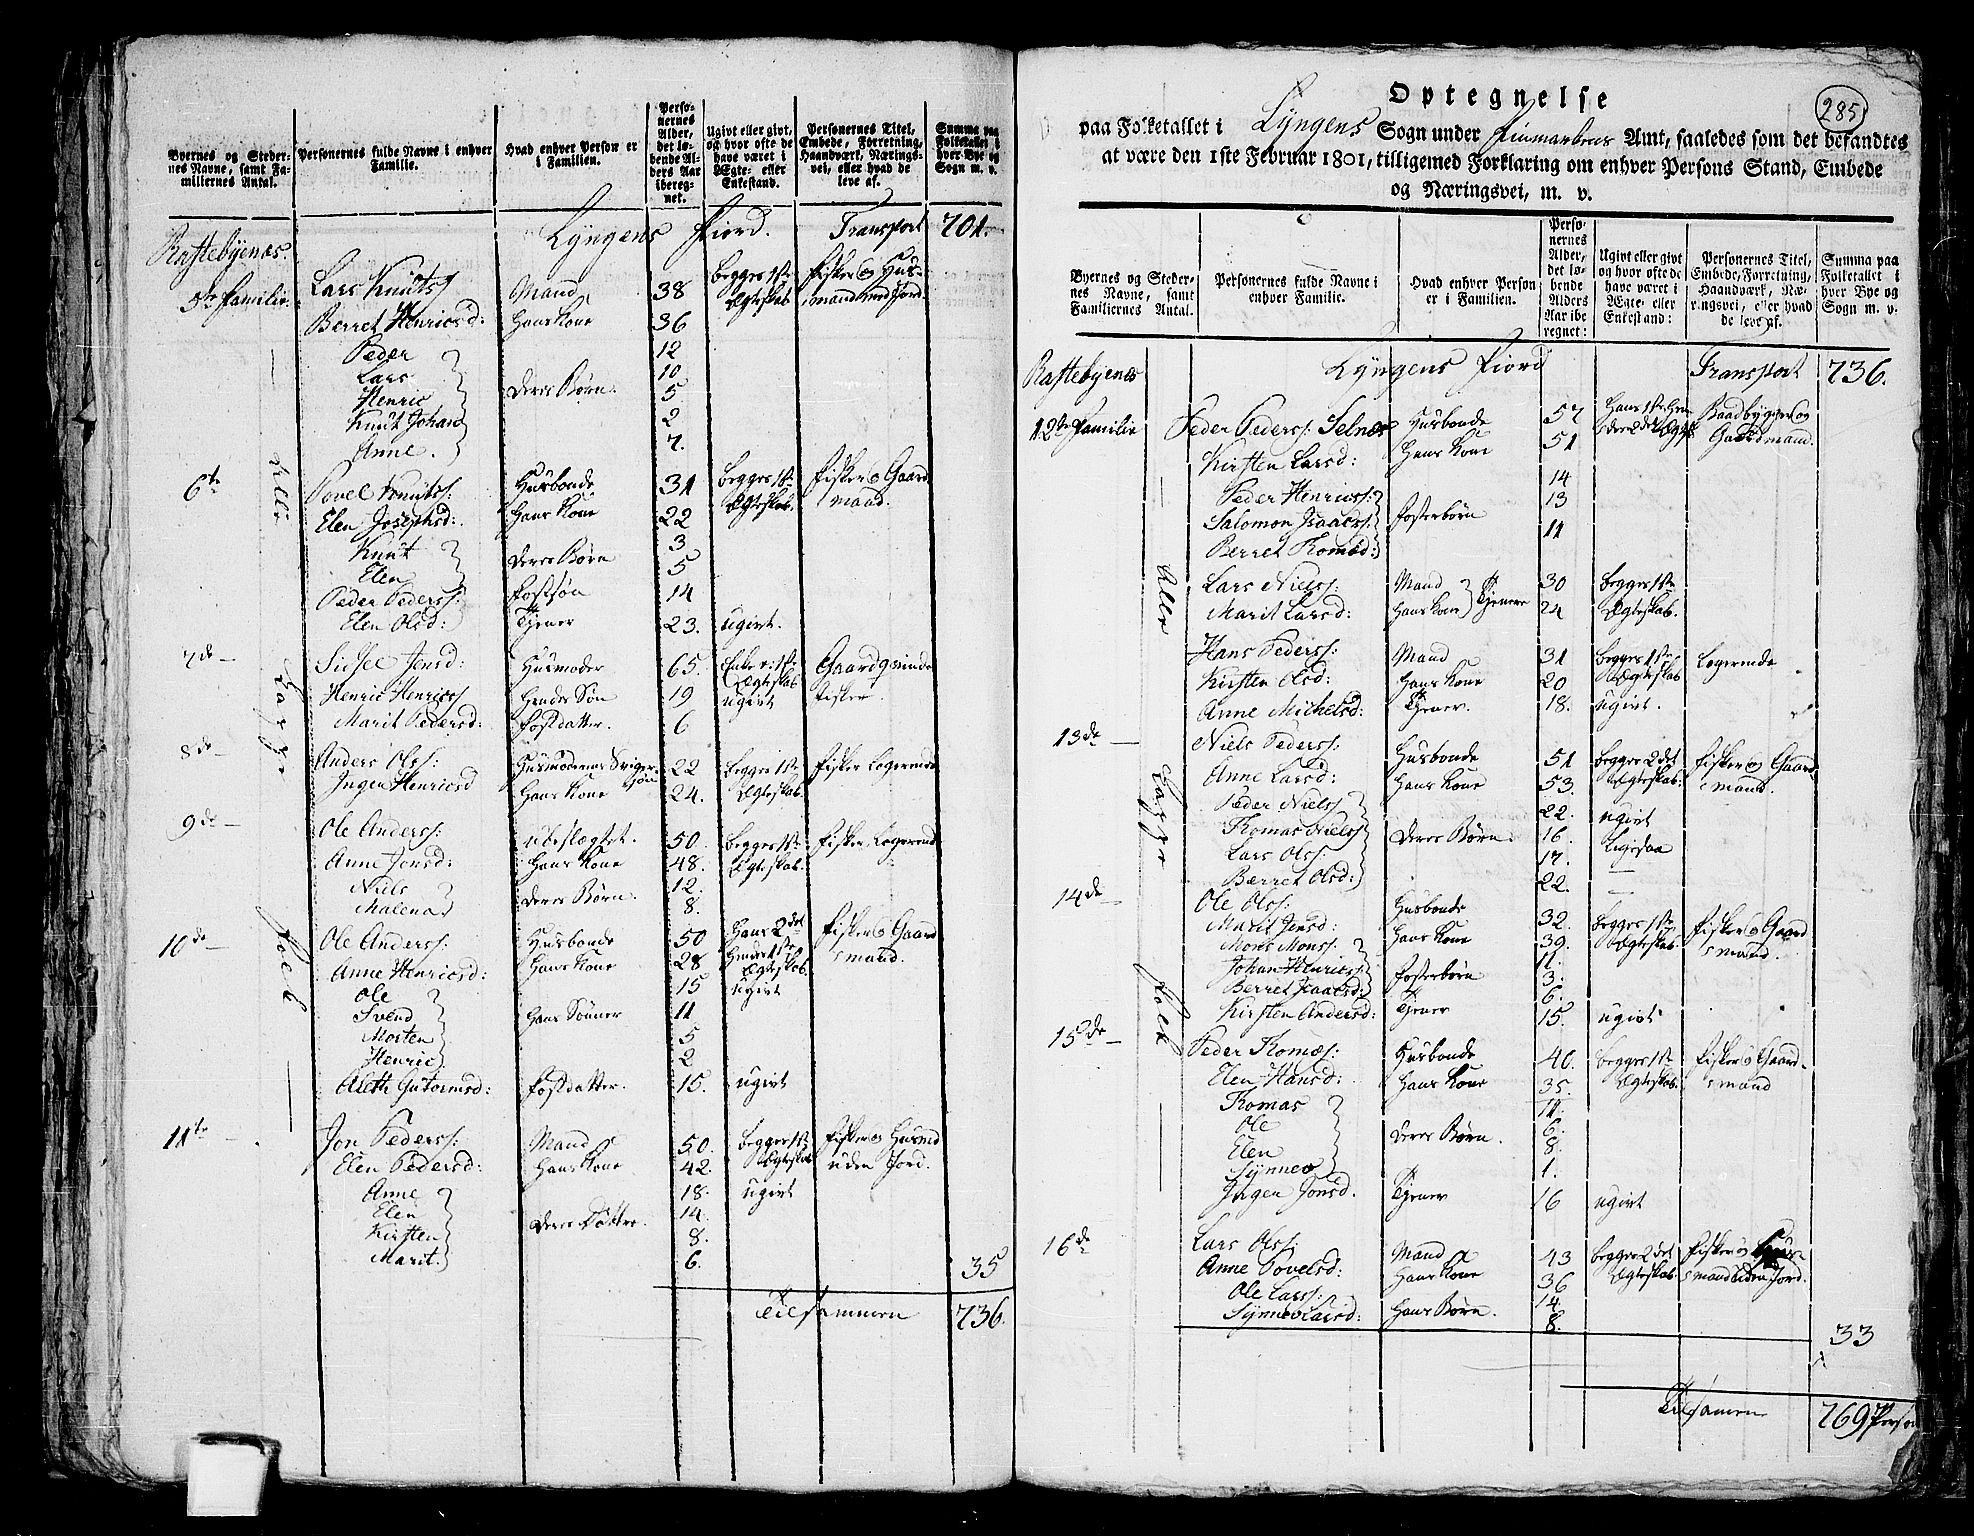 Byernes og Steder-
nes Navne, samt Fa-
miliernes Antal.
Personernes fulde Navne i enhver
Familie.
Hvad enhver Person er
i Familien.
Perso-
nernes
Alder,
det lø-
bende Al-
ders Aar
ibereg-
net.
Ugivt eller givt,
og hvor ofte de
have været i
Ægte- eller
Enkestand.
Personernes Titel,
Embede, Forretning,
Haandværk, Nærings-
vei, eller hvad de
leve af.
Summa paa
Folketallet i
hver Bye og
Sogn m. v.
Lyngens Fiord. Transport 701.
Rastebyenæs.
5te Familie. Lars Knuts Mand 38 begges 1ste Ægteskab Fisker og Huusmand med Jord.
Berret Henricsd: Hans Kone 36
Peder 12
Lars 10
Henric Deres Børn. 5
Knut Johan 2
Anne. 7.
6te Povel Knuts: Husbonde 31 begges 1ste Ægteskab. Fisker og Gaardmand.
Elen Josephsd: Hans Kone 22
Knut 3
Elen Deres Børn 5
Peder Peders: Fostsøn 14
Elen Olsd: Tjener 23. ugivt.
7de Sidsel Jonsd: Husmoder 65. Enke 1ste Ægteskab Gaardqvinde
Henric Henrics Hendes Søn 19 ugivt Fisker.
Marit Pedersd: Fostdatter. 6
8de Anders Ols: Husmoderens Svigersøn 22 begges 1ste Ægteskab. Fisker Logerende
Ingen Henricsd Hans Kone 24.
9de Ole Anders: ubeslægtet. 50. begges 1ste Ægteskab. Fisker Logerend
Anne Jonsd: Hans Kone 48.
Niels 12.
Malena Deres Børn. 8.
10de Ole Anders: Husbonde 50 Hans 2det Hendes 1ste Ægteskab Fisker og Gaardsmand.
Anne Henricsd: Hans Kone 28
Ole 15 ugivt
Svend Hans Sønner 11
Morten 5
Henric 2
Aleth Gutormsd: Fostdatter. 15. ugivt
11te Jon Peders: Mand 50. begges 1ste Ægteskab Fisker og Husmd uden Jord.
Elen Pedersd: Hans Kone 42.
Anne 18. ugivt
Elen 14.
Kirsten Deres Døttre. 8.
Marit 6.
35
Tilsammen 736.
Alle Lapper Folck
285
Optegnelse
paa Folketallet i Lyngens Sogn under Finmarkens Amt, saaledes som det befandtes
at være den 1ste Februar 1801, tilligemed Forklaring om enhver Persons Stand, Embede
og Næringsvei, m. v.
Byernes og Steder-
nes Navne, samt
Familiernes Antal.
Personernes fulde Navne i
enhver Familie.
Hvad enhver Person
er i Familien.
Perso-
nernes
Alder,
det lø-
bende
Alders
Aar ibe
regnet:
Ugivt eller givt
og hvor ofte de
have været i
Ægte- eller
Enkestand:
Personernes Titel,
Embede, Forretning,
Haandværk, Næ-
ringsvei, eller hvad
de leve af.
Summa paa
Folketallet i
hver Bye og
Sogn m. v.
Rastebyenæs Lyngens Fiord Transport 736.
12te Familie Peder Peders: Selnæs Husbonde 57 Baadbygger og Gaardmand.
Kirsten Larsd: Hans Kone 51
Peder Henrics: 14
Salomon Isaacs: Fosterbørn 13
Berret Tomæsd: 11
Lars Niels: Mand 30 begges 1ste Ægteskab.
Marit Larsd: Hans Kone Tjenere 24
Hans Peders: Mand 31 begges 1ste Ægteskab Logerende
Kirsten Olsd: Hans Kone 20
Anne Michelsd: Tjener. 18. ugivt.
13de Niels Peders: Husbonde 51 begges 2det Ægteskab. Fisker og Gaardsmand.
Anne Larsd: Hans Kone 53.
Peder Niels 22. ugivt
Tomas Niels Deres Børn. 16. Ligesaa
Lars Ols: 17.
Berret Olsd: 22.
14de Ole Ols: Husbonde 32. begges 1ste Ægteskab. Fisker og Gaardsmand.
Marit Jensd: Hans Kone 39.
Mons Mons: 11.
Johan Henrics Fosterbørn 3.
Berret Isaacsd: 6.
Kirsten Andersd: Tjener 15. ugivt
15de Peder Tomæs: Husbonde 40. begges 1ste Ægteskab. Fisker og Gaardsmand
Elen Hansd: Hans Kone 35.
Tomas 11.
Ole Deres Børn. 6.
Elen 8.
Synnev 1.
Ingen Jonsd. Tjener 16 ugivt
16de Lars Ols: Mand 43 begges 2det Ægteskab. Fisker og Huusmand uden Jord.
Anne Povelsd: Hans Kone 36
Ole Lars: 14.
Synnev Larsd: Hans Børn. 8.
33
Tilsamen 769 Person
Alle Lapper Folck